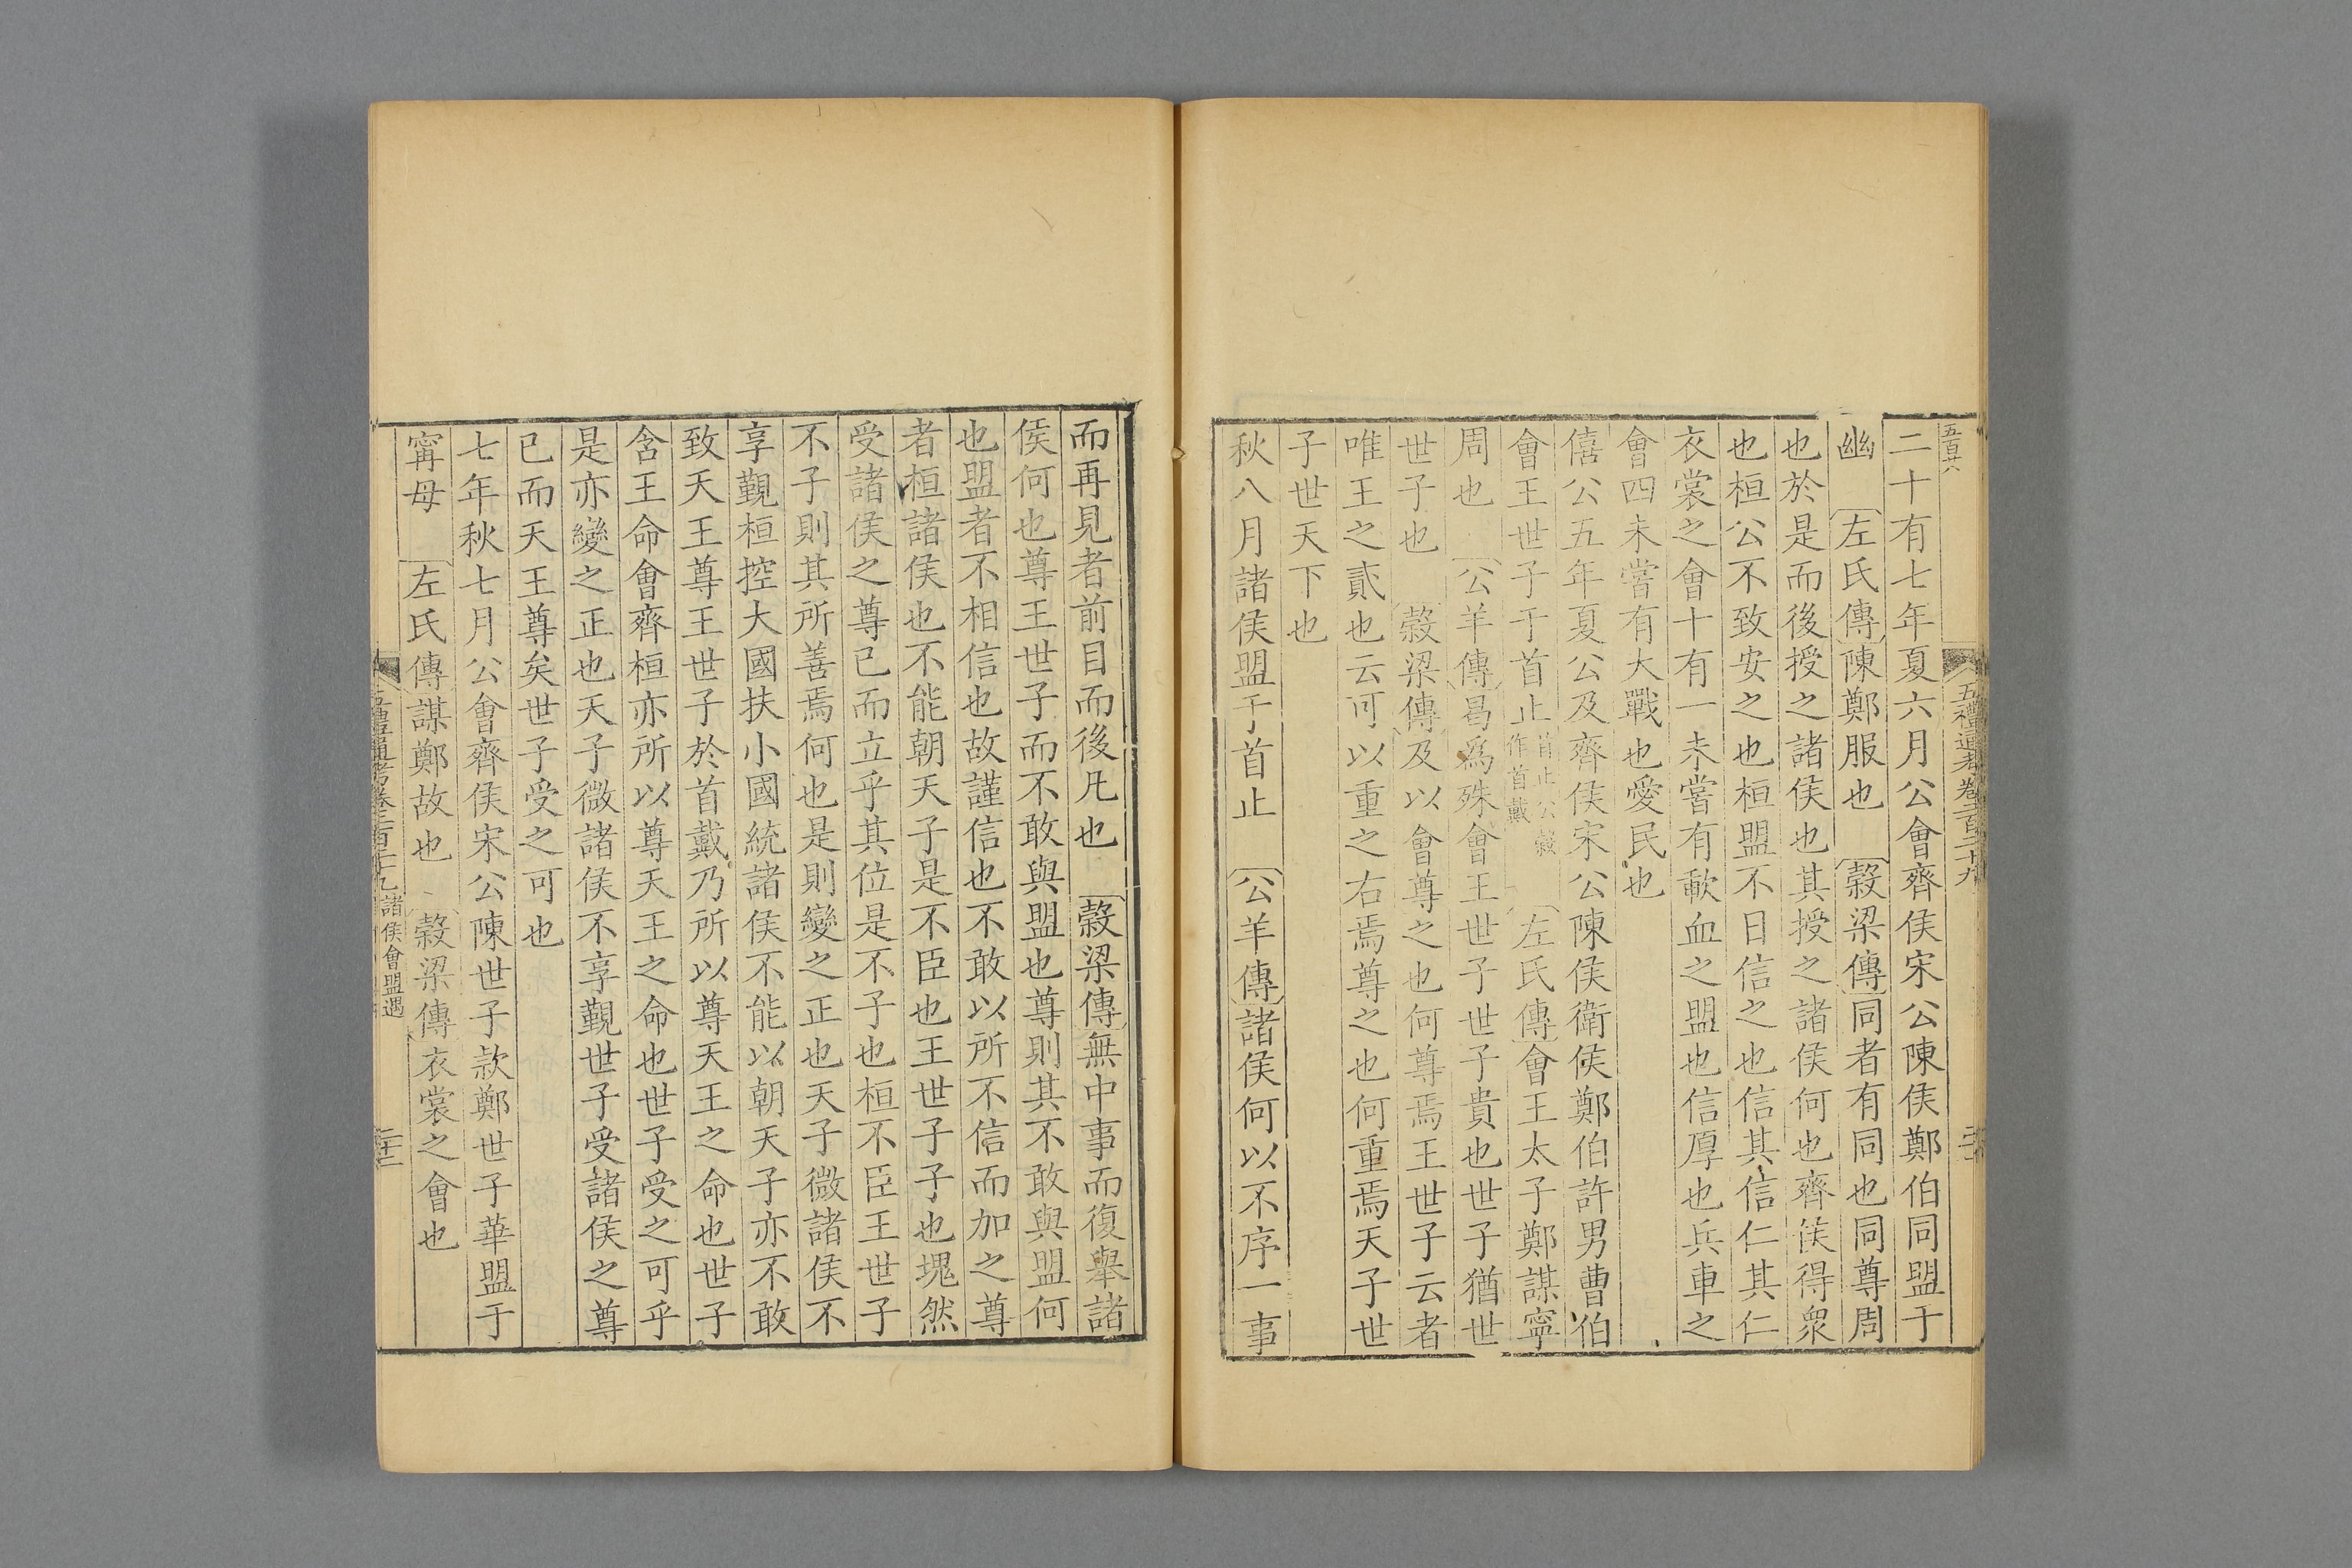 五百廿八
二十有七年夏六月公會齊侯宋公陳侯鄭伯同盟于
幽　左氏傳陳鄭服也　穀梁傳同者有同也同尊周
也於是而後授之諸侯也其授之諸侯何也齊侯得衆
也桓公不致安之也桓盟不日信之也信其信仁其仁
衣裳之會十有一未嘗有歃血之盟也信厚也兵車之
會四未嘗有大戰也愛民也
僖公五年夏公及齊侯宋公陳侯衛侯鄭伯許男曹伯
會王世子于首止首止公穀作首戴　左氏傳會王太子鄭謀寧
周也　公羊傳曷爲殊會王世子世子貴也世子猶世
世子也　穀梁傳及以會尊之也何尊焉王世子云者
唯王之貳也云可以重之右焉尊之也何重焉天子世
子世天下也
秋八月諸侯盟于首止　公羊傳諸侯何以不序一事
而再見者前目而後凡也　穀梁傳無中事而復舉諸
侯何也尊王世子而不敢與盟也尊則其不敢與盟何
也盟者不相信也故謹信也不敢以所不信而加之尊
者桓諸侯也不能朝天子是不臣也王世子子也塊然
受諸侯之尊己而立乎其位是不子也桓不臣王世子
不子則其所善焉何也是則變之正也天子微諸侯不
享覲桓控大國扶小國統諸侯不能以朝天子亦不敢
致天王尊王世子於首戴乃所以尊天王之命也世子
含王命會齊桓亦所以尊天王之命也世子受之可乎
是亦變之正也天子微諸侯不享覲世子受諸侯之尊
已而天王尊矣世子受之可也
七年秋七月公會齊侯宋公陳世子款鄭世子華盟于
甯母　左氏傳謀鄭故也　穀梁傳衣裳之會也
諸侯會盟遇